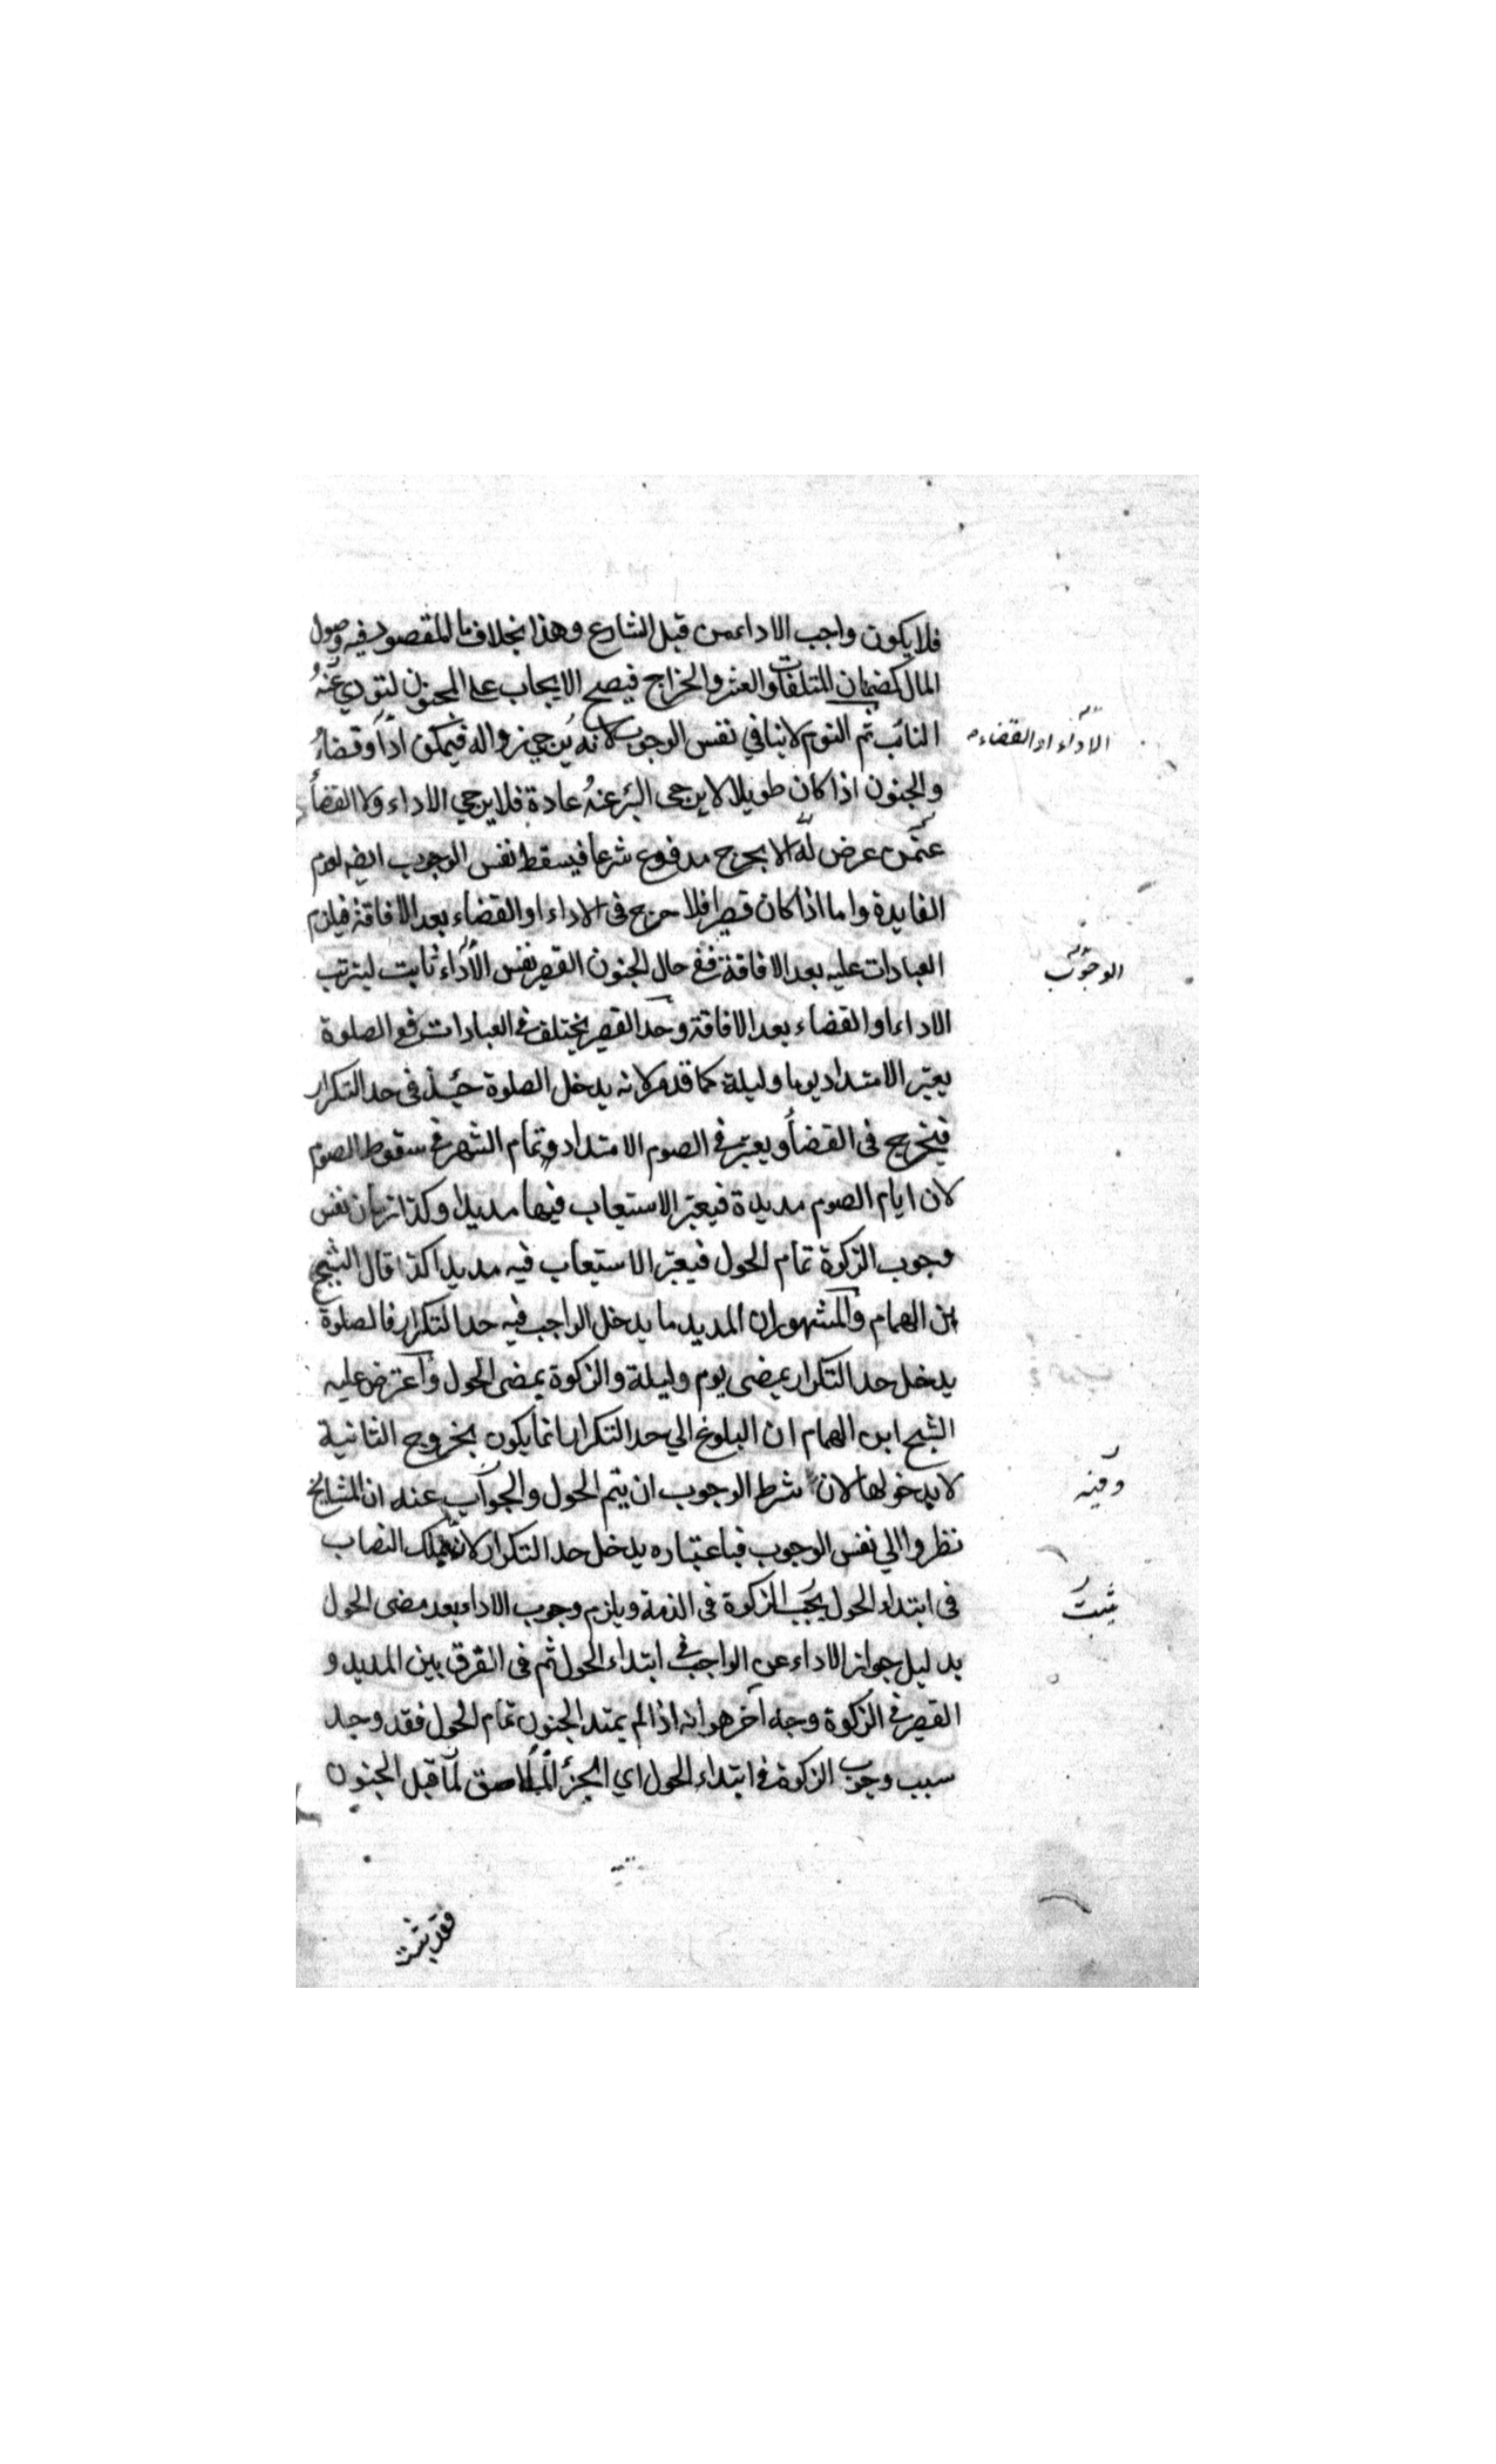 فلا يكون واجب الاداء من قبل الشارع وهذا بخلاف ما المقصود فيه وصول
المال كضمان المتلفات والعشر والخراج فيصح الايجاب على المجنون ليؤدي عنه
النائب ثم النوم لا ينافي نفس الوجوب لانه يرجي زواله فيمكن اداؤ وقضاء
الاداء او القضاء
والجنون اذا كان طويلا لا يرجى البرء عنه عادة فلا يرجي الاداء ولا القضاء
عمن عرض له الا بحرج مدفوع شرعا فيسقط نفس الوجوب ايضه لعدم
الفايدة واما اذا كان قصيرا فلا حرج فى الاداء او القضاء بعد الافاقة فيلزم
العبادات عليه بعد الافاقة ففي حال الجنون القصير نفس الاداء ثابت ليترتب
الوجوب
الاداء او القضاء بعد الافاقة وحد القصير يختلف في العبادات ففي الصلوة
يعتبر الامتداد يوما وليلة كما قدم لانه يدخل الصلوة حينئذ فى حد التكرار
فيخرج فى القضاء ويعتبر في الصوم الامتداد وتمام الشهر في سقوط الصوم
لان ايام الصوم مديدة فيعتبر الاستيعاب فيها مديدا وكذا زمان نفس
وجوب الزكوة تمام الحول فيعتبر الاستيعاب فيه مديدا كذا قال الشيخ
ابن الهمام والمشهور ان المديد ما يدخل الواجب فيه حد التكرار فالصلوة
يدخل حد التكرار بمضى يوم وليلة والزكوة بمضى الحول واعترض عليه
الشيخ ابن الهمام ان البلوغ الي حد التكرار انما يكون بخروج الثانية
لا بدخولها لان شرط الوجوب ان يتم الحول والجواب عنه ان المشايخ
وفيه
نظروا الي نفس الوجوب فباعتباره يدخل حد التكرار لانه بملك النصاب
فى ابتداء الحول يجب الزكوة فى الذمة ويلزم وجوب الاداء بعد مضى الحول
يثبت
بدليل جواز الاداء عن الواجب في ابتداء الحول ثم فى الفرق بين المديد و
القصير في الزكوة وجه آخر هو انه اذا لم يمتد الجنون تمام الحول فقد وجد
سبب وجوب الزكوة في ابتداء الحول اي الجزء الملاصق لما قبل الجنون
فقد يثبت